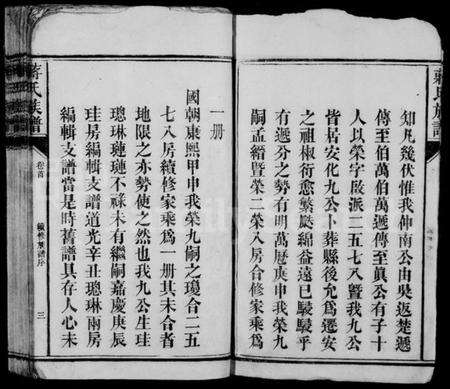 蔣氏族譜
知凡幾伏惟我仲南公由吳返楚遞
傳至伯萬伯萬遞傳至眞公有子十
人以榮字啟派二五七八暨我九公
皆居安化九公卜葬縣後允爲遷安
之祖椒衍愈繁瓞綿益遠已駸駸乎
有遞分之勢有明萬厯庚申我榮九
嗣孟縉暨榮二榮入房合修家乘爲
一册
國朝康熙甲申我榮九嗣之瓊合二五
七八房續修家乘爲一册其未合者
地限之亦勢使之然也我九公生珪
璁琳璉璉不祿未有繼嗣嘉慶庚辰
珪房編輯支譜道光辛丑璁琳兩房
編輯支譜當是時舊譜具存人心未
蔣氏族譜
卷首
續修族譜序
三